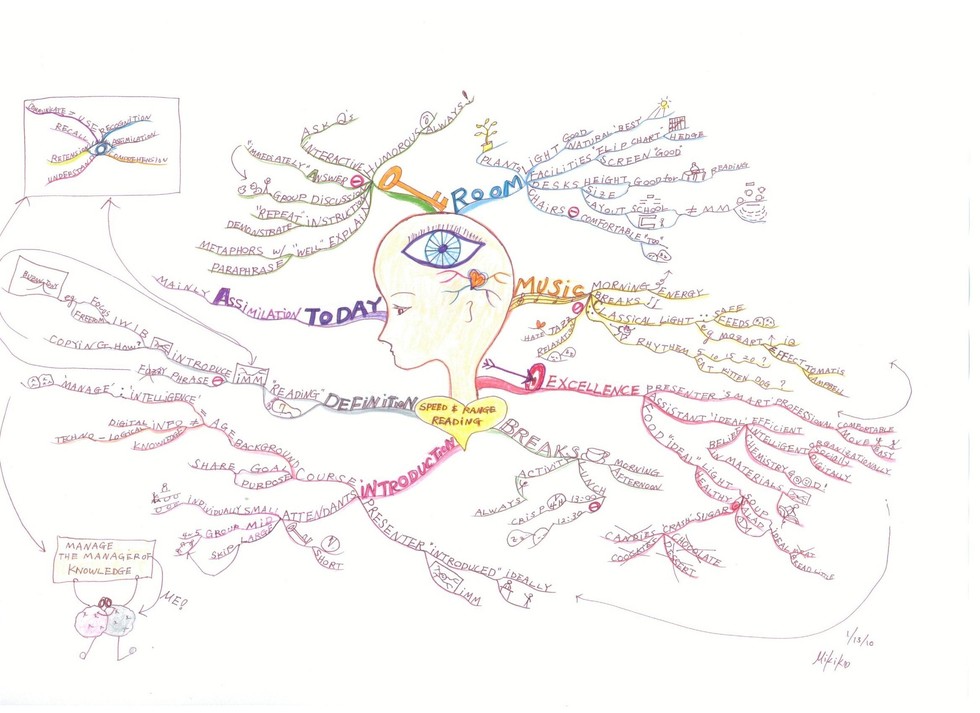 COMMUNICATE = USE
RECALL
RETENTION
UNDERSTAND
RECOGNITION
ASSIMILATION
COMPREHENSION
ASK Q's
INTERACTIVE
HUMOROUS
ALWAYS!
"IMMEDIATELY"
ANSWER
GROUP DISCUSSION
"REPEAT" INSTRUCTION
DEMONSTRATE
"WELL" EXPLAIN
METAPHORS w/
PARAPHRASE
ROOM
PLANTS
LIGHT
GOOD
NATURAL "BEST"
FACILITIES
FLIP CHART
HEDGE
SCREEN "GOOD"
DESKS
HEIGHT Good for READING
SIZE
LAYOUT SCHOOL
≠ MM
CHAIRS
COMFORTABLE "TOO"
MAINLY
ASSIMILATION
TODAY
MUSIC
MORNING ENERGY
BREAKS
CLASSICAL LIGHT
SAFE
SPEEDS
eg MOZART
IQ
EFFECT
TOMATIS
CAMPBELL
HATE JAZZ
RELAXATION
RHYTHEM
5 10 15 20 ?
CAT KITTEN DOG ?
EXCELLENCE
PRESENTER "SMART" PROFESSIONAL
COMFORTABLE
MOVE
EASY
ASSISTANT "IDEAL"
EFFICIENT
INTELLIGENT
ORGANIZATIONALLY
SOCIALLY
DIGITALLY
CHEMISTRY GOOD!
BELIEF
IN MATERIALS
FOOD "IDEAL"
LIGHT
HEALTHY
SOUP
SALAD
IDEAL
BREAD LITTLE
"CRASH" SUGAR
CANDIES
COOKIES
CHOCOLATE
DESSERT
BREAKS
MORNING
AFTERNOON
LUNCH
12:00
12:30
ACTIVITY
ALWAYS
CRISP
DEFINITION
"READING"
INTRODUCE
iMM
FUZZY PHRASE
IWIB
eg
FOCUS
FREEDOM
COPYING HOW?
"MANAGE"
"INTELLIGENCE"
DIGITAL INFO
TECHNO-LOGICAL
KNOWLEDGE
≠ AGE
BACKGROUND
SHARE GOAL
PURPOSE
COURSE
INTRODUCTION
ATTENDANTS
INDIVIDUALLY SMALL
4-5 GROUP MID
SKIP LARGE
SHORT
PRESENTER
"INTRODUCED" IDEALLY
iMM
SPEED & RANGE
READING
MANAGE
THE MANAGER OF
KNOWLEDGE
ME?
1/15/10
Mikiko